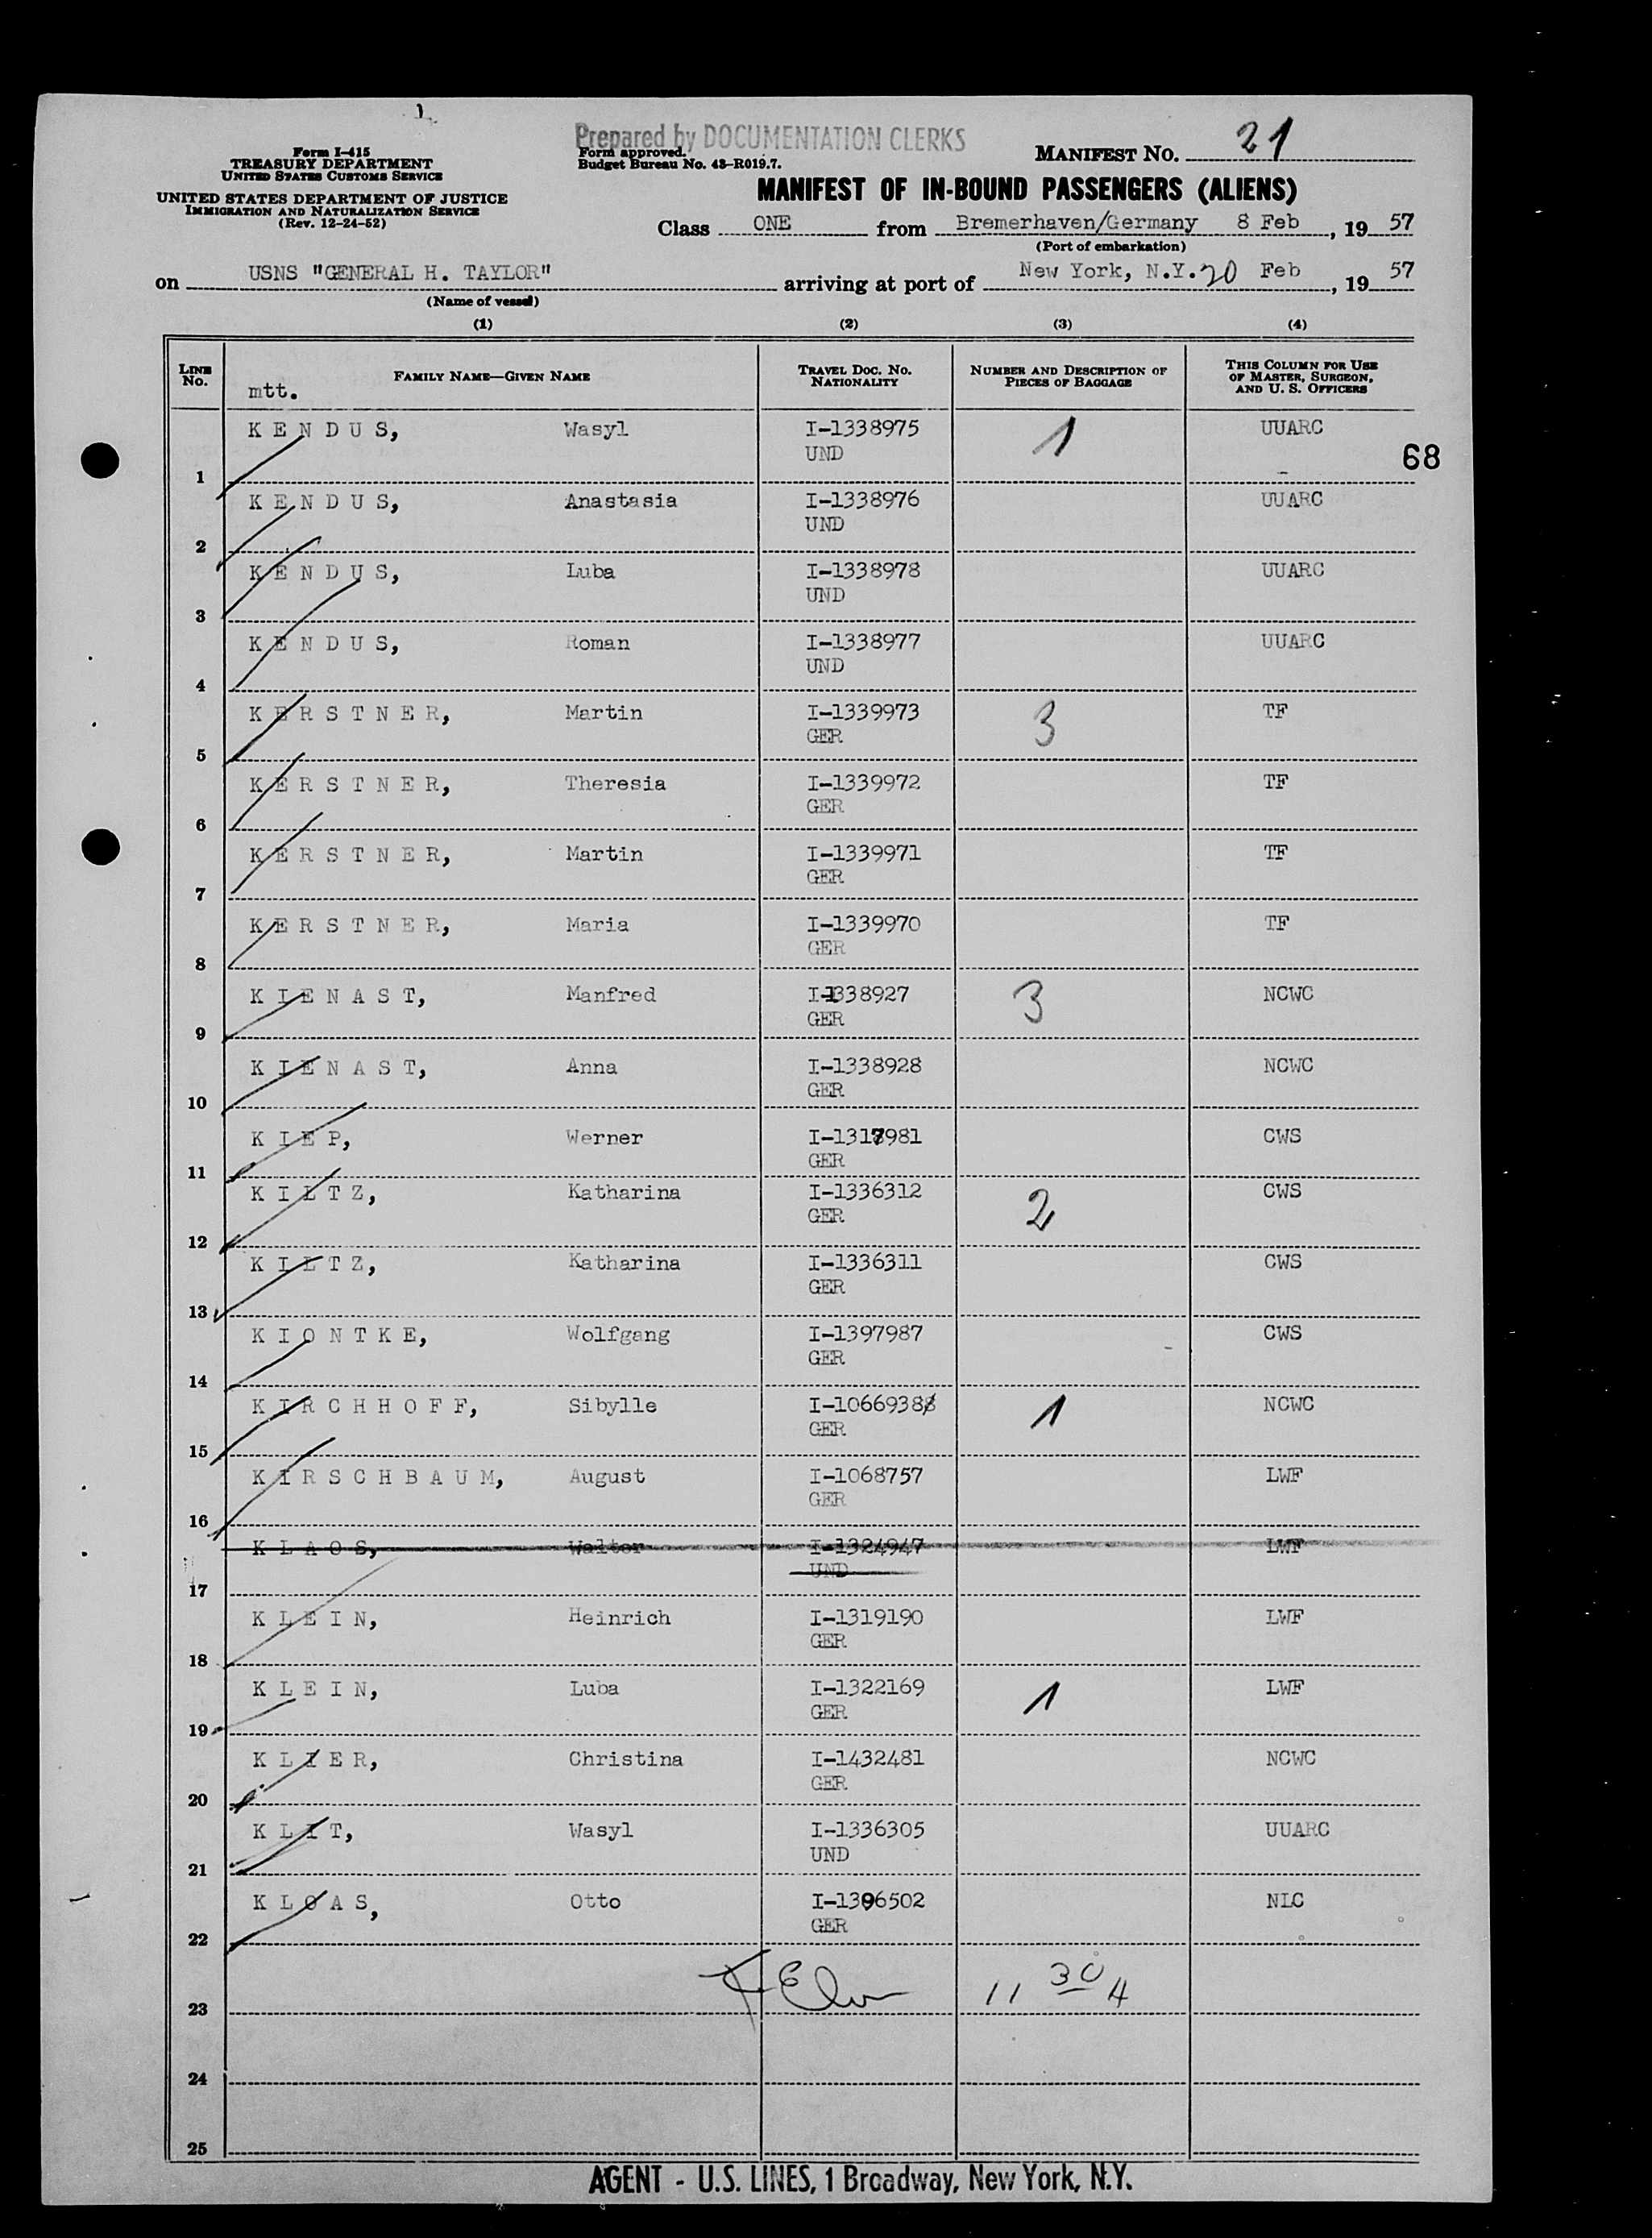 Prepared by DOCUMENTATION CLERKS
Form I-415
TREASURY DEPARTMENT
UNITED STATES CUSTOMS SERVICE
UNITED STATES DEPARTMENT OF JUSTICE
IMMIGRATION AND NATURALIZATION SERVICE
(Rev. 12-24-52)
Form approved.
Budget Bureau No. 43-R019.7.
MANIFEST NO. 21
MANIFEST OF IN-BOUND PASSENGERS (ALIENS)
Class ONE from Bremerhaven/Germany 8 Feb, 19 57
(Port of embarkation)
on USNS "GENERAL H. TAYLOR" arriving at port of New York, N.Y. 20 Feb, 19 57
(Name of vessel)
(1) (2) (3) (4)
LINE NO. FAMILY NAME—GIVEN NAME TRAVEL DOC. NO. NATIONALITY NUMBER AND DESCRIPTION OF PIECES OF BAGGAGE THIS COLUMN FOR USE OF MASTER, SURGEON, AND U. S. OFFICERS
mtt.
K E N D U S, Wasyl I-1338975 1 UUARC
UND 68
1
K E N D U S, Anastasia I-1338976 UUARC
UND
2
K E N D U S, Luba I-1338978 UUARC
UND
3
K E N D U S, Roman I-1338977 UUARC
UND
4
K E R S T N E R, Martin I-1339973 3 TF
GER
5
K E R S T N E R, Theresia I-1339972 TF
GER
6
K E R S T N E R, Martin I-1339971 TF
GER
7
K E R S T N E R, Maria I-1339970 TF
GER
8
K I E N A S T, Manfred I-1338927 3 NCWC
GER
9
K I E N A S T, Anna I-1338928 NCWC
GER
10
K I E P, Werner I-1317981 CWS
GER
11
K I L T Z, Katharina I-1336312 2 CWS
GER
12
K I L T Z, Katharina I-1336311 CWS
GER
13
K I O N T K E, Wolfgang I-1397987 CWS
GER
14
K I R C H H O F F, Sibylle I-10669388 1 NCWC
GER
15
K I R S C H B A U M, August I-1068757 LWF
GER
16
K L A O S, Walter I-1324947 LWF
UND
17
K L E I N, Heinrich I-1319190 LWF
GER
18
K L E I N, Luba I-1322169 1 LWF
GER
19
K L I E R, Christina I-1432481 NCWC
GER
20
K L I T, Wasyl I-1336305 UUARC
UND
21
K L O A S, Otto I-1396502 NLC
GER
22
11 30 4
23
24
25
AGENT - U.S. LINES, 1 Broadway, New York, N.Y.